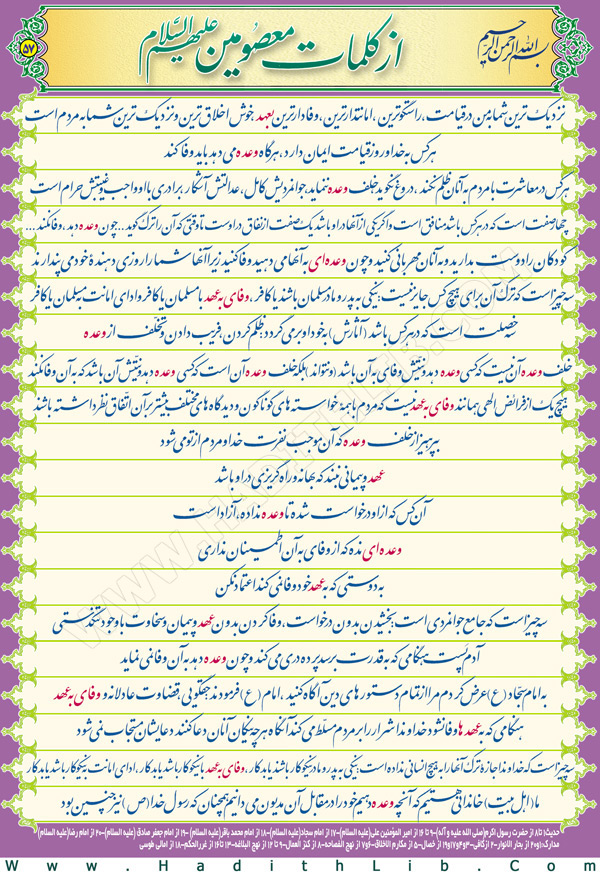 بسم الله الرحمن الرحیم
از کلمات معصومین علیهم السلام
۵۷
نزدیک ترین شما به من در قیامت، راستگوترین، امانتدارترین، وفادارترین بعهد، خوش اخلاق ترین و نزدیک ترین شما به مردم است
هرکس به خدا و روز قیامت ایمان دارد، هرگاه وعده می دهد باید وفا کند
هرکس در معاشرت با مردم به آنان ظلم نکند، دروغ نگوید خلف وعده ننماید جوانمردیش کامل، عدالتش آشکار برادری با او واجب و غیبتش حرام است
چهار صفت است که در هرکس باشد منافق است و اگر یکی از آنها در او باشد یک صفت از نفاق در اوست تا وقتی که آن را ترک گوید... چون وعده دهد، وفا نکند...
کودکان را دوست بدارید و به آنان مهربانی کنید و چون وعده ای به آنها می دهید وفا کنید زیرا آنها شما را روزی دهندهٔ خود می پندارند
سه چیز است که ترک آن برای هیچ کس جایز نیست: نیکی به پدر و مادر مسلمان باشند یا کافر، وفای به عهد با مسلمان یا کافر و ادای امانت به مسلمان یا کافر
خصلت است که در هرکس باشد (آثارش) به خود او برمی گردد: ظلم کردن، فریب دادن و تخلف از وعده
خلف وعده آن نیست که کسی وعده دهد و نیتش وفای به آن باشد (و نتواند) بلکه خلف وعده آن است که کسی وعده دهد و نیتش آن باشد که به آن وفا نکند
هیچ یک از فرائض الهی همانند وفای به عهد نیست که مردم با همهٔ خواسته های گوناگون و دیدگاه های مختلف بیشتر بر آن اتّفاق نظر داشته باشند
بپرهیز از خلف وعده که آن موجب نفرت خدا و مردم از تو می شود
عهد و پیمانی نبند که بهانه و راه گریزی در او باشد
آن کس که از او درخواست شده تا وعده نداده، آزاد است
وعده ای نده که از وفای به آن اطمینان نداری
به دوستی که به عهد خود وفا نمی کند اعتماد نکن
سه چیز است که جامع جوانمردی است: بخشیدن بدون درخواست، وفا کردن بدون عهد و پیمان و سخاوت با وجود تنگدستی
آدم پَست هنگامی که به قدرت برسد پرده دری می کند و چون وعده دهد به آن وفا نمی نماید
به امام سجاد (ع) عرض کردم مرا از تمام دستورهای دین آگاه کنید. امام (ع) فرمودند: حق‌گویی، قضاوت عادلانه و وفای به عهد
هنگامی که به عهدها وفا نشود خداوند اشرار را بر مردم مسلّط می کند آنگاه هرچه نیکان آنان دعا کنند دعایشان مستجاب نمی شود
سه چیز است که خداوند اجازهٔ ترک آنها را به هیچ انسانی نداده است: نیکی به پدر و مادر نیکوکار باشند یا بدکار، وفای به عهد با نیکوکار باشد یا بدکار، ادای امانت به نیکوکار باشد یا بدکار
ما (اهل بیت) خاندانی هستیم که آنچه وعده دهیم خود را در مقابل آن مدیون می دانیم همچنان که رسول خدا (ص) نیز چنین بود
www.HadithLib.com
www.HADITHLIB.COM
www.HadithLib.Com